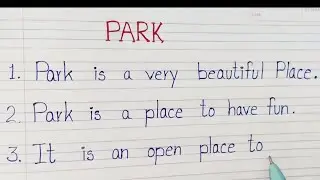 PARK
1. Park is a very beautiful Place.
2. Park is a place to have fun.
3. It is an open place to